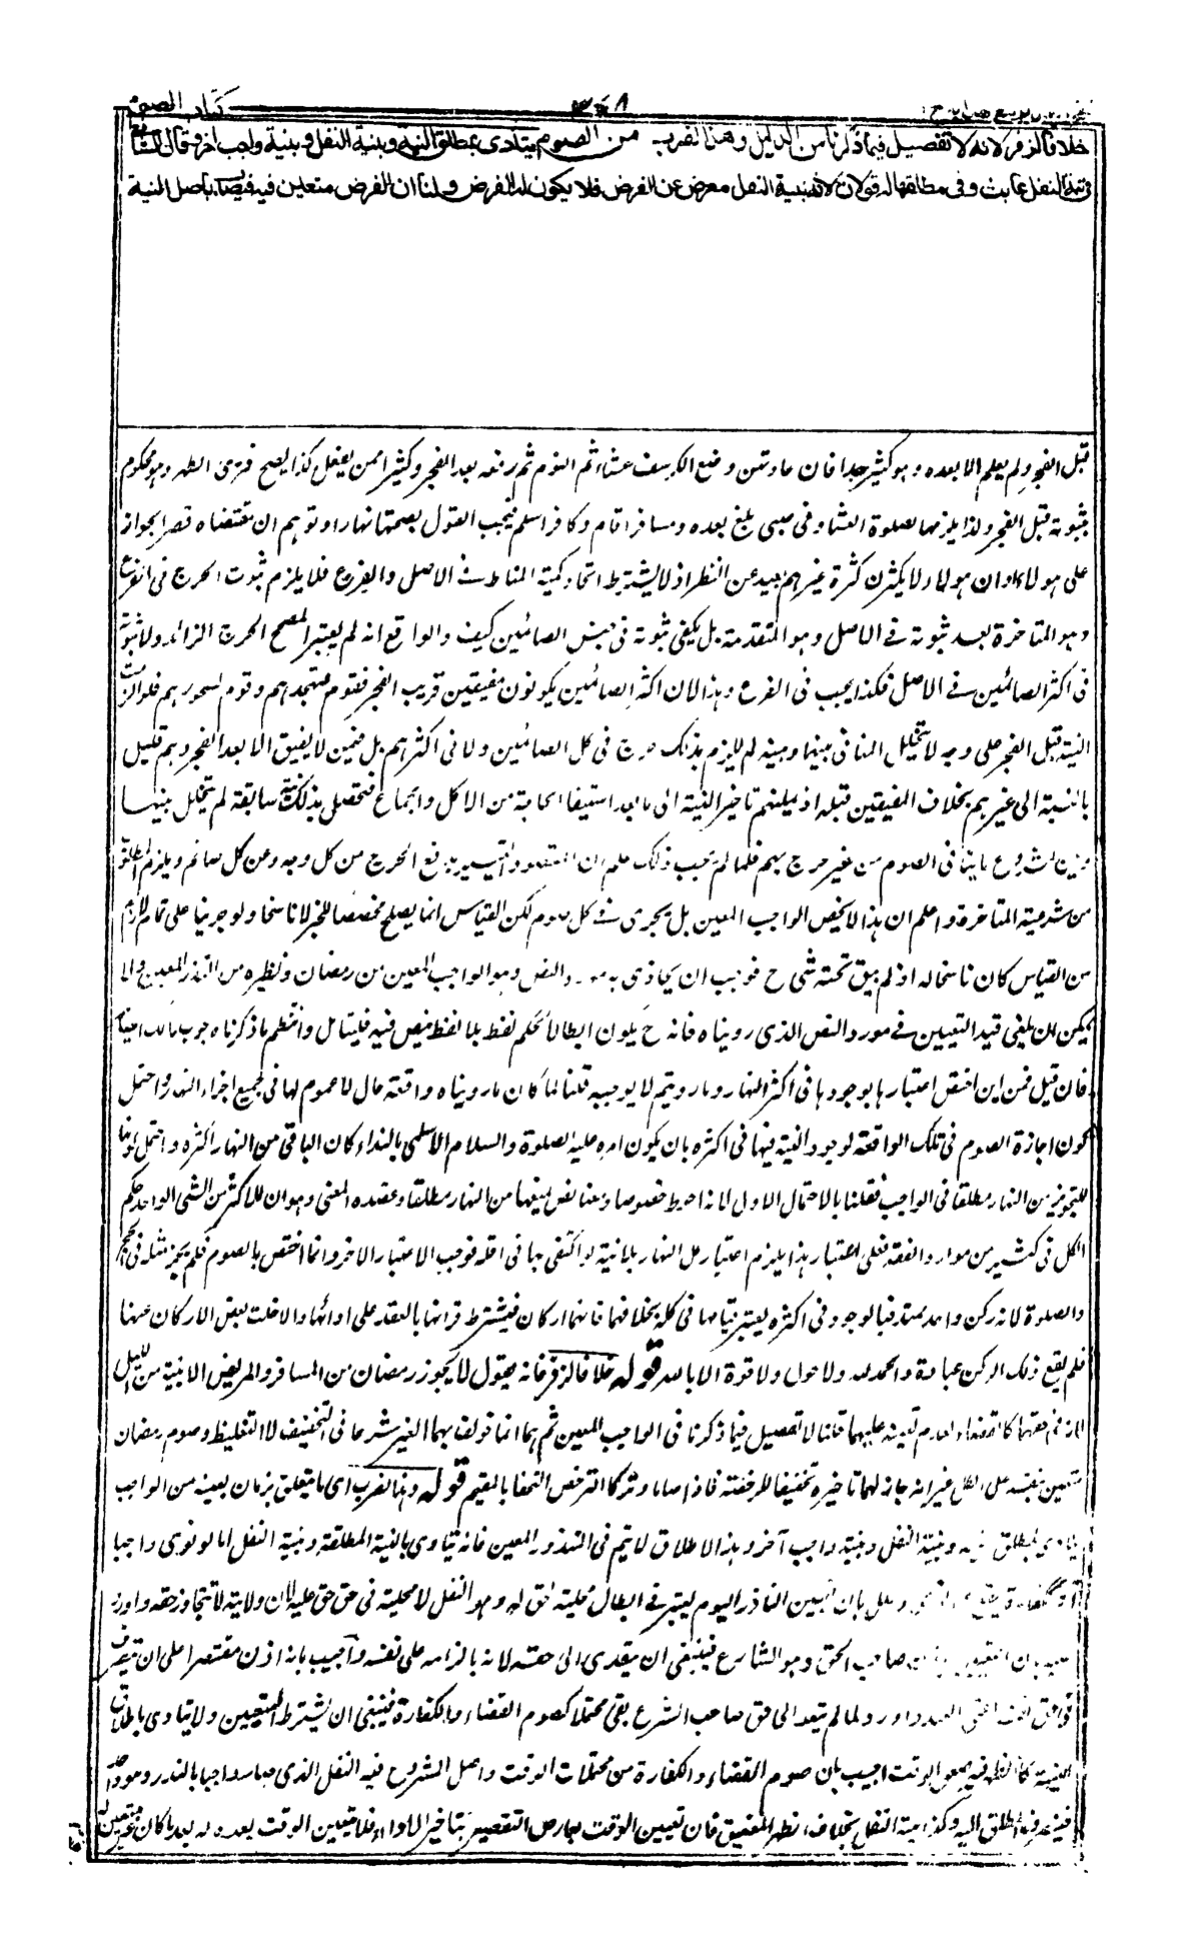 كتاب الصوم
خلافا لزفر لانه لا تفصيل فيما ذكرنا من الدليل وهذا الضرب من الصوم يتادى بمطلق النية وبنية النفل وبنية واجب اخر وقال الشافعي
في نية النفل عابث وفي مطلقها له قولان لانه بنية النفل معرض عن الفرض فلا يكون له الفرض ولنا ان الفرض متعين فيه فيصاب باصل النية
قبل الفجر ولم يعلم الا بعده وهو كثير جدا فان عادتهن وضع الكرسف عشاء ثم النوم ثم رفعه بعد الفجر وكثيرا ممن يفعل كذا يصبح فترى الطهر وهو محكوم
بثبوته قبل الفجر ولذا يلزمها بصلوة العشاء وفي صبي بلغ بعده ومسافر اقام وكافر اسلم فيجب القول بصحتها نهارا وتوهم ان مقتضاه قصر الجواز
على هولاء او ان هولاء لا يكثرن كثرة غيرهم بعيد عن النظر اذ لا يشترط اتحاد كمية المناط في الاصل والفرع فلا يلزم ثبوت الحرج في الفرع
وهو المتاخرة بعد ثبوته في الاصل وهو المتقدمة بل يكفي ثبوته في جنس الصائمين كيف والواقع انه لم يعتبر المصحح الحرج الزائد ولا ثبوته
في اكثر الصائمين في الاصل فكذا يجب في الفرع وهذا لان اكثر الصائمين يكونون مفيقين قريب الفجر فقوم لتهجدهم وقوم لسحورهم فلو الزمت
النية قبل الفجر على وجه لا يتخلل المنافي بينها وبينه لم يلزم بذلك حرج في كل الصائمين ولا في اكثرهم بل فيمن لا يفيق الا بعد الفجر وهم قليل
بالنسبة الى غيرهم بخلاف المفيقين قبله اذ يمكنهم تاخير النية الى ما بعد استيفاء الحاجة من الاكل والجماع فتحصل بذلك نية سابقة لم يتخلل بينها
وبين الشروع ما ينافي الصوم من غير حرج بهم فلما لم يجب ذلك علم ان المقصود التيسير بدفع الحرج من كل وجه وعن كل صائم ويلزم المطلوب
من شرعية المتاخرة واعلم ان هذا لا يخص الواجب المعين بل يجري في كل صوم لكن القياس انما يصلح مخصصا للخبر لا ناسخا ولو جرينا على تمام لازم
من القياس كان ناسخا له اذ لم يبق تحته شي ح فوجب ان يحاذى به مورد النص وهو الواجب المعين من رمضان ونظيره من النذر المعين ولا
يمكن ان يلغى قيد التعيين في مورد النص الذي رويناه فانه ح يكون ابطالا لحكم لفظ بلا لفظ ينص فيه فليتامل وانتظم ما ذكرناه جواب مالك ايضا
فان قيل فمن اين اختص اعتبارها بوجودها في اكثر النهار وما رويتم لا يوجبه قلنا لما كان ما رويناه واقعة حال لا عموم لها في جميع اجزاء النهار واحتمل
كون اجازة الصوم في تلك الواقعة لوجود النية فيها في اكثره بان يكون امره عليه الصلوة والسلام الاسلمي بالنداء كان الباقي من النهار اكثره واحتمل كونها
للتجويز من النهار مطلقا في الواجب فقلنا بالاحتمال الاول لانه احوط خصوصا ومعنا نص يمنعها من النهار مطلقا وعضده المعنى وهو ان للاكثر من الشي الواحد حكم
الكل في كثير من موارد الفقه فعلى اعتبار هذا يلزم اعتبار كل النهار بلا نية لو اكتفي بها في اقله فوجب الاعتبار الاخر وانما اختص بالصوم فلم يجز مثله في الحج
والصلوة لانه ركن واحد ممتد فبالوجود في اكثره يعتبر قيامها في كله بخلافهما فانهما اركان فيشترط قرانها بالعقد على ادائها والا خلت بعض الاركان عنها
فلم يقع ذلك الركن عبادة والحمد لله ولا حول ولا قوة الا بالله قوله خلافا لزفر فانه يقول لا يجوز رمضان من المسافر والمريض الا بنية من الليل
لانه في حقهما كالقضاء لعدم تعينه عليهما قلنا لا تفصيل فيما ذكرنا في الواجب المعين ثم هما انما خولف بهما الغير شرعا في التخفيف لا التغليظ وصوم رمضان
متعين بنفسه على الكل غير انه جاز لهما تاخيره تخفيفا للرخصة فاذا صاما وتركا الترخص التحقا بالمقيم قوله وهذا الضرب اي ما يتعلق بزمان بعينه من الواجب
يتادى بمطلق النية وبنية النفل وبنية واجب آخر وهذا الاطلاق لا يتم في المنذور المعين فانه يتادى بالنية المطلقة وبنية النفل اما لو نوى واجبا
بان تعيين الناذر اليوم يعتبر في ابطال محلية حق له وهو النفل لا محلية في حق حق عليه لان ولايته لا تتجاوز حقه واورد
صاحب الحق وهو الشارع فينبغي ان يتعدى الى حقه لانه بالزامه على نفسه واجيب بانه اذن مقتصرا على ان يتصرف
في حق نفسه اعني العبد واورد ولما لم يتعد الى حق صاحب الشرع بقي محتملا كصوم القضاء والكفارة فينبغي ان يشترط التعيين ولا يتادى باطلاق
النية كالظهر في الوقت اجيب بان صوم القضاء والكفارة من محتملات الوقت واصل المشروع فيه النفل الذي صار واجبا بالنذر وهو واحد
فينصرف المطلق اليه وكذا نية النفل بخلاف الظهر المضيق فان تعيين الوقت بعارض التقصير بتاخير الاداء فلا يتعين الوقت بعده له بعد ما كان غير متعين له